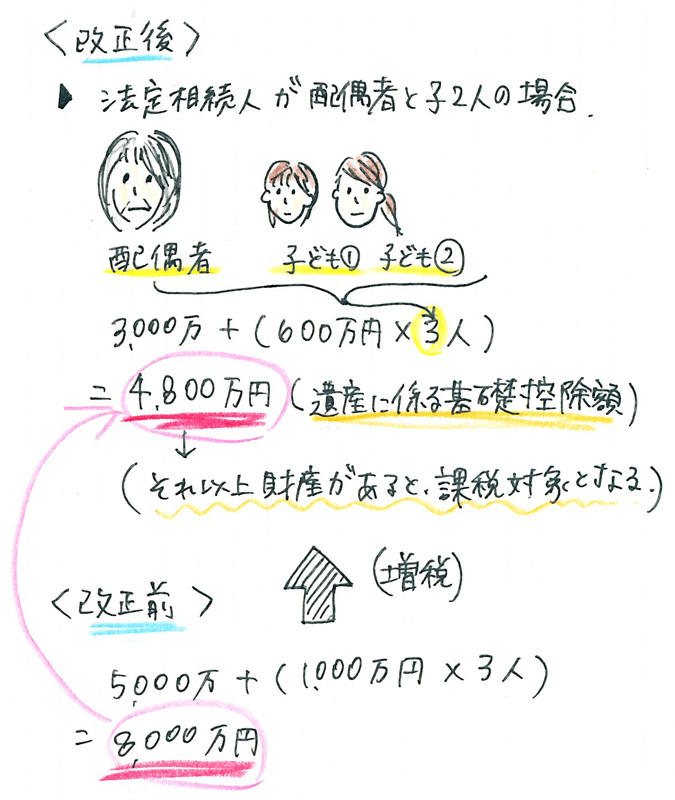 〈改正後〉
▶ 法定相続人が配偶者と子2人の場合.
配偶者 子ども① 子ども②
3,000万+(600万円×3人)
=4,800万円(遺産に係る基礎控除額)
↓
(それ以上財産があると、課税対象となる.)
(増税)
〈改正前〉
5,000万+(1,000万円×3人)
=8,000万円